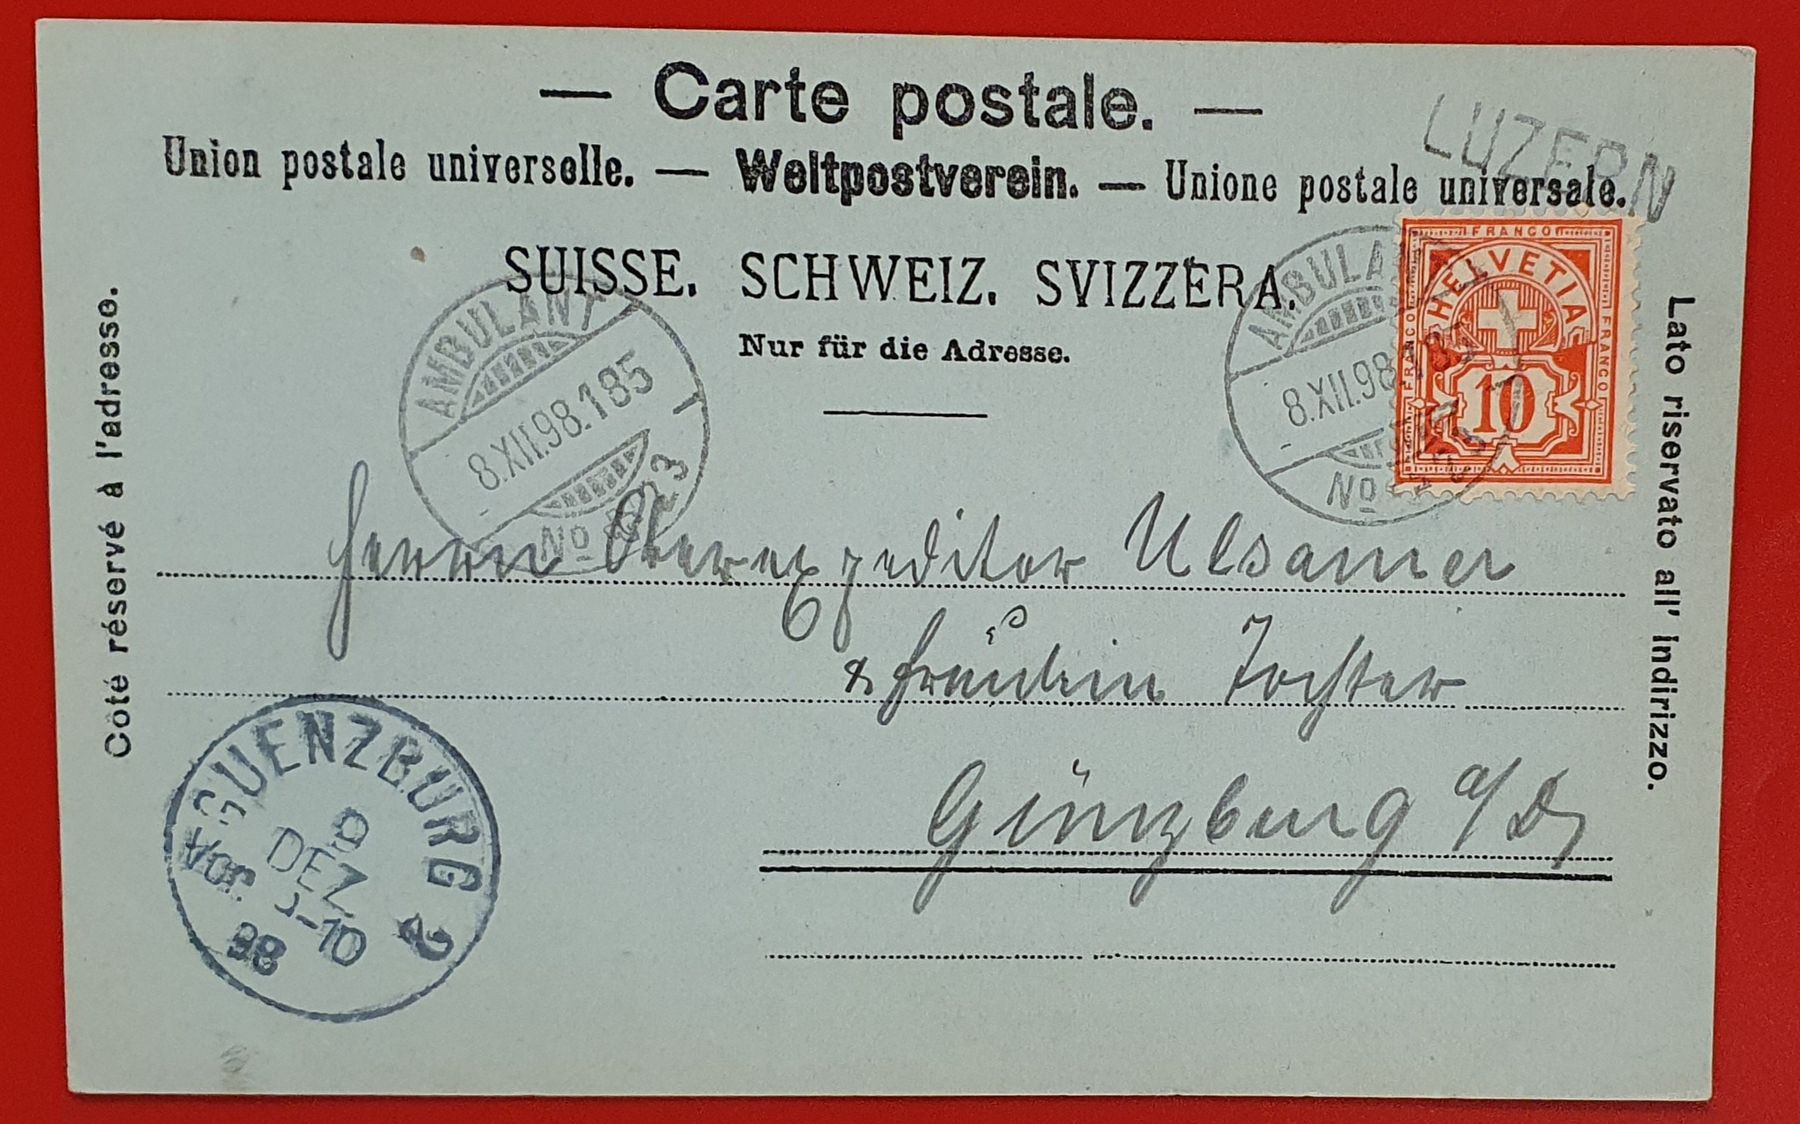 — Carte postale. —
LUZERN
Union postale universelle. — Weltpostverein. — Unione postale universale.
SUISSE. SCHWEIZ. SVIZZERA.
Nur für die Adresse.
Côté réservé à l'adresse.
Lato riservato all' indirizzo.
FRANCO
HELVETIA
FRANCO
FRANCO
10
AMBULANT
8.XII.98.185
No 23
AMBULANT
8.XII.98.185
No
Herrn Oberexpeditor Ulsamer
& Fräulein Tochter
Günzburg a/D
GUENZBURG 2
9
DEZ
Vor. -10
98